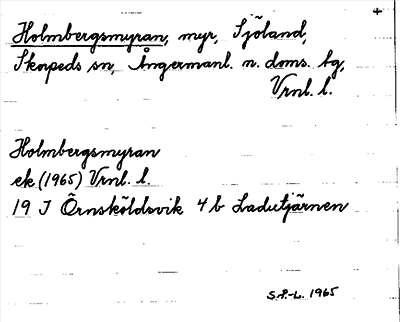 Holmbergsmyran, myr, Sjöland,
Skorpeds sn, Ångermanl. n. doms. tg,
Vrnl. l.
Holmbergsmyran
ek (1965) Vrnl. l.
19 J Örnsköldsvik 4 b Ladutjärnen
S.P.-L. 1965